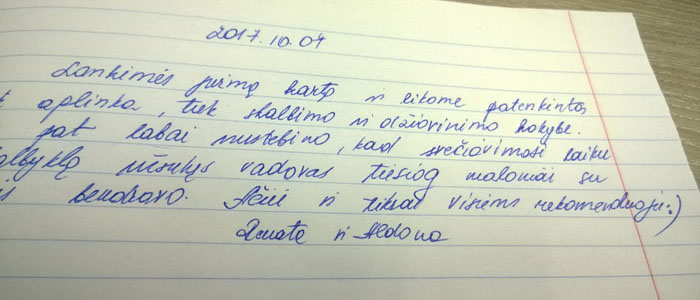 2017.10.07
Lankimės pirmą kartą ir likome patenkintos
aplinka, tiek skalbimo ir džiovinimo kokybe.
pat labai nustebino, kad svečiavimosi laiku
albyklą rūsulys vadovas tiesiog maloniai su
is bendravo. Ačiū ir tikrai visiems rekomenduoju :)
Renata ir Aldona